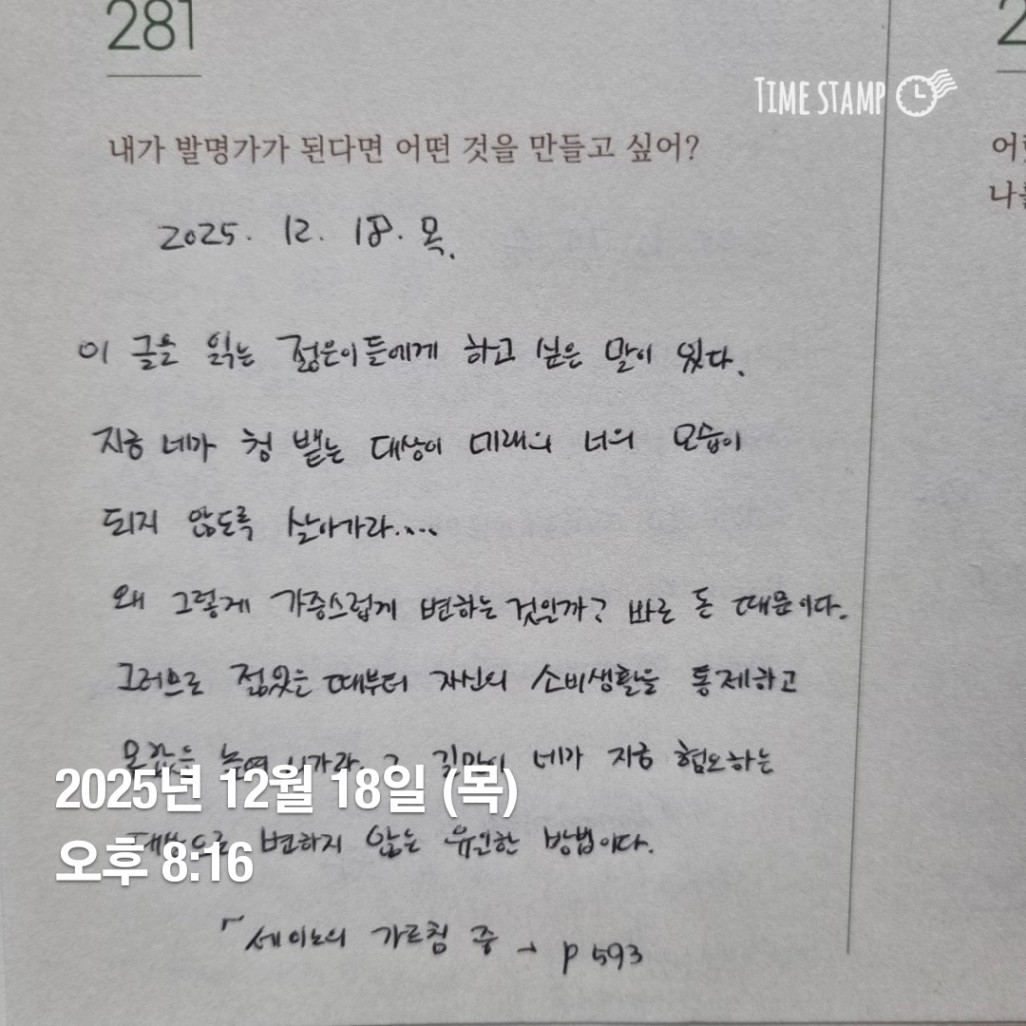 281
TIME STAMP
내가 발명가가 된다면 어떤 것을 만들고 싶어?
2025. 12. 18. 목.
이 글을 읽는 젊은이들에게 하고 싶은 말이 있다.
지금 네가 침 뱉는 대상이 미래의 너의 모습이
되지 않도록 살아가라....
왜 그렇게 가증스럽게 변하는 것일까? 바로 돈 때문이다.
그러므로 젊었을 때부터 자신의 소비생활을 통제하고
몸값을 높여 나가라. 그 길만이 네가 지금 혐오하는
대상으로 변하지 않는 유일한 방법이다.
「세이노의 가르침 중 - p 593
2025년 12월 18일 (목)
오후 8:16